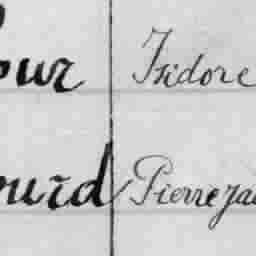 our Isidore
ourd Pierre ja